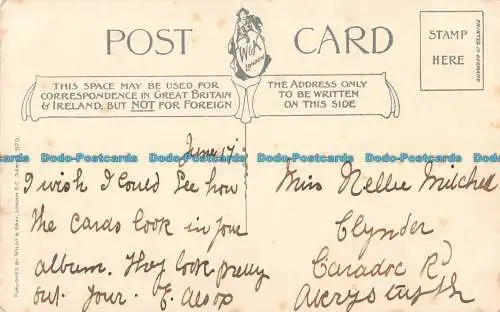 POST CARD
W&K
LONDON
STAMP
HERE
PRINTED IN GERMANY
THIS SPACE MAY BE USED FOR
CORRESPONDENCE IN GREAT BRITAIN
& IRELAND, BUT NOT FOR FOREIGN
THE ADDRESS ONLY
TO BE WRITTEN
ON THIS SIDE
Dodo-Postcards Dodo-Postcards Dodo-Postcards Dodo-Postcards
June 17
I wish I could see how
the cards look in your
album. They look pretty
out. Your. E. Aesop
Miss Nellie Mitchell
Clynder
Caradoc Rd
Aberystwyth
Dodo-Postcards Dodo-Postcards Dodo-Postcards Dodo-Postcards
PUBLISHED BY WILDT & KRAY, LONDON, E.C. SERIES